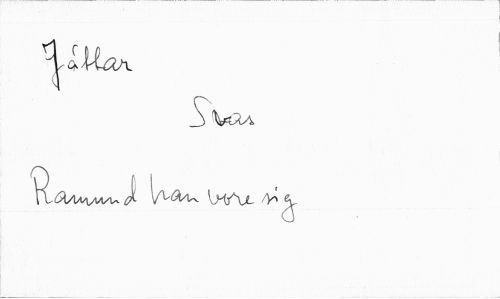 Jättar
Svas
Ramund han vore sig